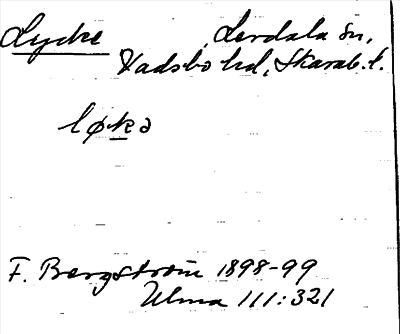 Lycke Lerdala sn,
Vadsbo hd, Skarab. l.
løkə
F. Bergström 1898-99
Ulma 111:321